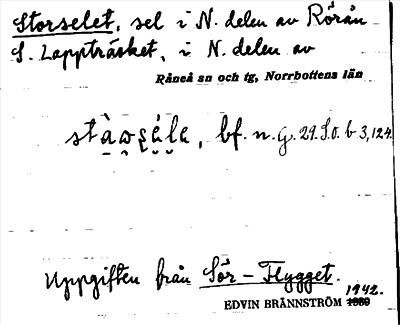 Storselet, sel i N. delen av Rörån
S. Lappträsket, i N. delen av
Råneå sn och tg, Norrbottens län
bf. n. G. 29. S.O. b 3,124.
Uppgiften från Sör-Flygget.
1942.
EDVIN BRÄNNSTRÖM 1939